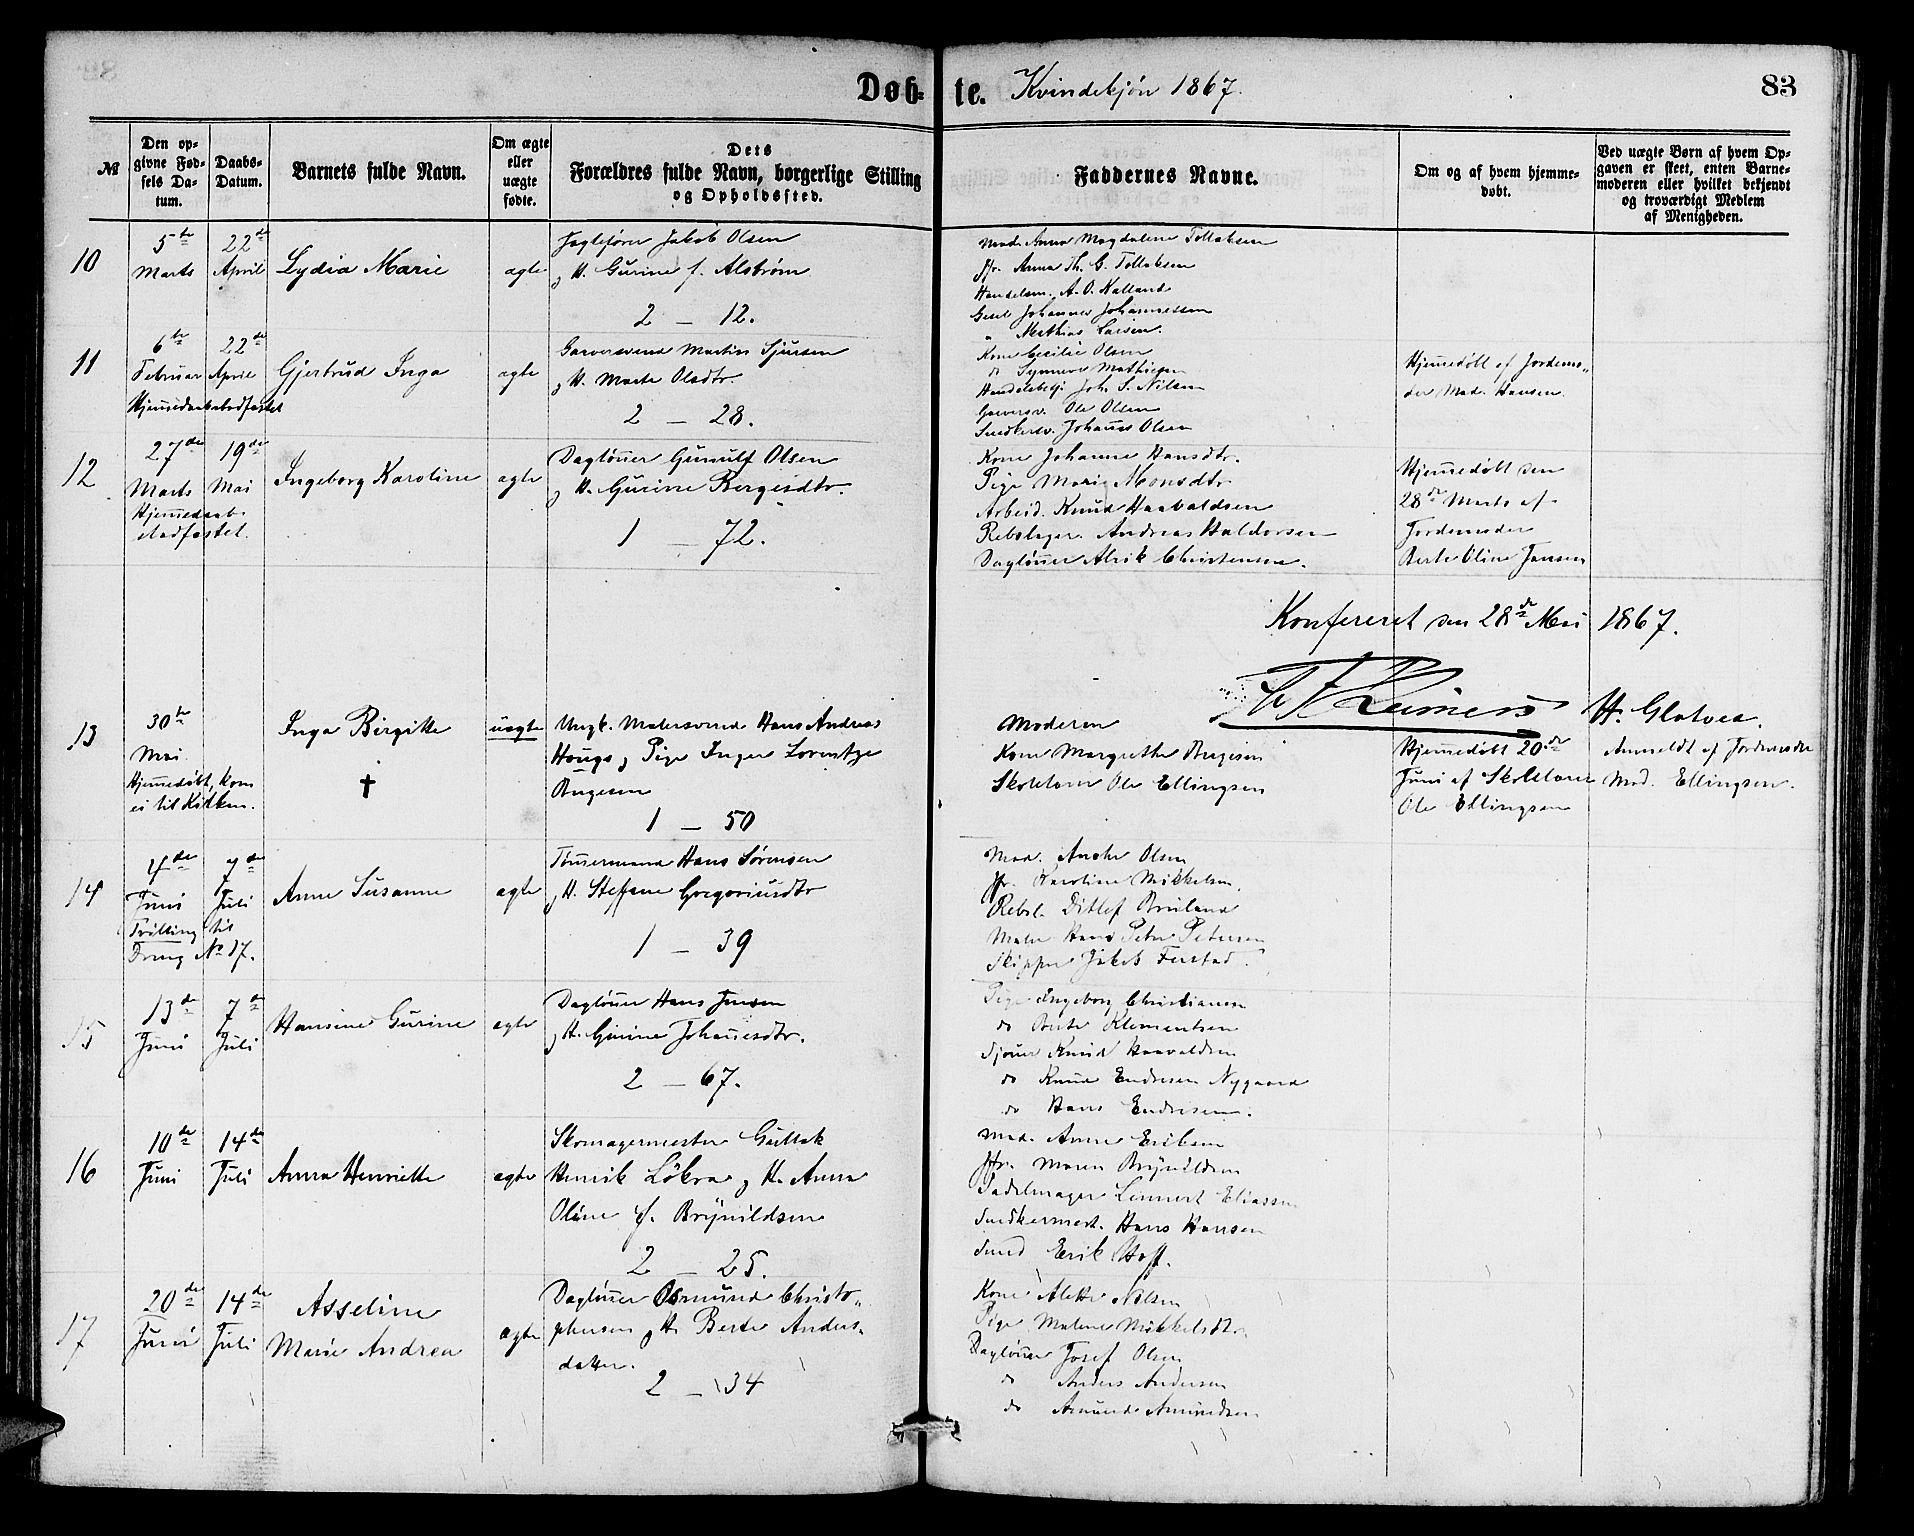 Døb=te. Kvindekjön 1867. 83
№
Den opgivne Fødsels Datum.
Daabs-Datum.
Barnets fulde Navn.
Om ægte eller uægte fødte.
Dets Forældres fulde Navn, borgerlige Stilling og Opholdssted.
Faddernes Navne.
Om og af hvem hjemmedøbt.
Ved uægte Børn af hvem Opgaven er skeet, enten Barnemoderen eller hvilket bekjendt og troværdigt Medlem af Menigheden.
10
5te Marts
22de April
Lydia Marie
ægte
Jakob Olsen
og H. Gurine f. Alström
2 — 12.
Mad. Anna Magdalene Tollaksen
Jfr. Anna Th. C. Tollaksen
Handelsm. A. O. Kalland
Johannes Johannessen
" Mathias Larsen.
11
6te Februar
22de April
Hjemedaab stadfæstet
Gjertrud Inga
ægte
Garversvend Martin Sjursen
og H. Marte Olsdtr.
2 — 28.
Kone Cecilie Olsen
do Synneve Mathisen
Handelsbetj. Joh. S. Nilsen
Garversv. Ole Olsen
Snedkersv. Johanes Olsen
Hjemedöbt af Jordemo„
der Mad. Hansen.
12
27de Marts
19de Mai
Hjemedaab
stadfæstet.
Ingeborg Karoline
ægte
Daglöner Gunulf Olsen
og H. Gurine Bergesdtr.
1 — 72.
Kone Johanne Hansdtr.
Pige Mari Monsdtr
Arbeid. Knud Haavaldsen
Rebslager. Andreas Haldorsen
Daglöner Alrik Christensen.
Hjemedöbt den
28de Marts af
Jordemoder
Berte Oline Jansen
Konfereret den 28de Mai 1867.
H. Glatved.
13
30te Mai.
Hjemedöbt, kom
ei til Kirken.
Inga Birgitte
†
uægte
Ungk. Malersvend Hans Andreas
Hougs og Pige Inger Lorentze
Bugesen
1 — 50
Moderen
Kone Margrethe Bugesen
Skolelærer Ole Ellingsen
Hjemedöbt 20de
Juni af Skolelærer
Ole Ellingsen
Anmeldt af Jordemoder
Mad. Ellingsen.
14
4de Juni
7de Juli
Tvilling til
Dreng No 17.
Anne Susanne
ægte
Tömmermand Hans Sörensen
og H. Steffine Gregoriusdtr
1 — 39
Mad. Olsen
Jfr. Karoline Mikkelsen.
Rebsl. Ditlef Bruland
Maler Hans Peter Petersen
Skipper Jakob
15
13de Juni
7de Juli
Hansine Gurine
ægte
Daglöner Hans Jensen
og H. Gurine Johanesdtr.
2 — 67.
Pige Ingeborg Christiansen
do Berte Klementsen
Sjömr Knud Haavaldsen
do Knud Endresen Nygaard
do Hans Endresen.
16
10de Juni
14de Juli
Anna Henriette
ægte
Skomagermester Gullak
Henrik Lökra og H. Anna
Oline f. Brynildsen
2 — 25.
Mad. Anne Eriksen
Jfr. Maren Brynildsen
Sadelmager Lennert Eliassen
Snedkermest. Hans Hansen
Erik Hoff.
17
20de Juni
14de Juli
Asseline
Marie Andrea
ægte
Daglöner Osmund Christo„
phersen og H. Berte Anders„
datter.
2 — 34
Kone Alette Nilsen
Pige Malene Mikkelsdtr
Daglöner Josef Olsen
do Anders Andersen
do Amund Amundsen